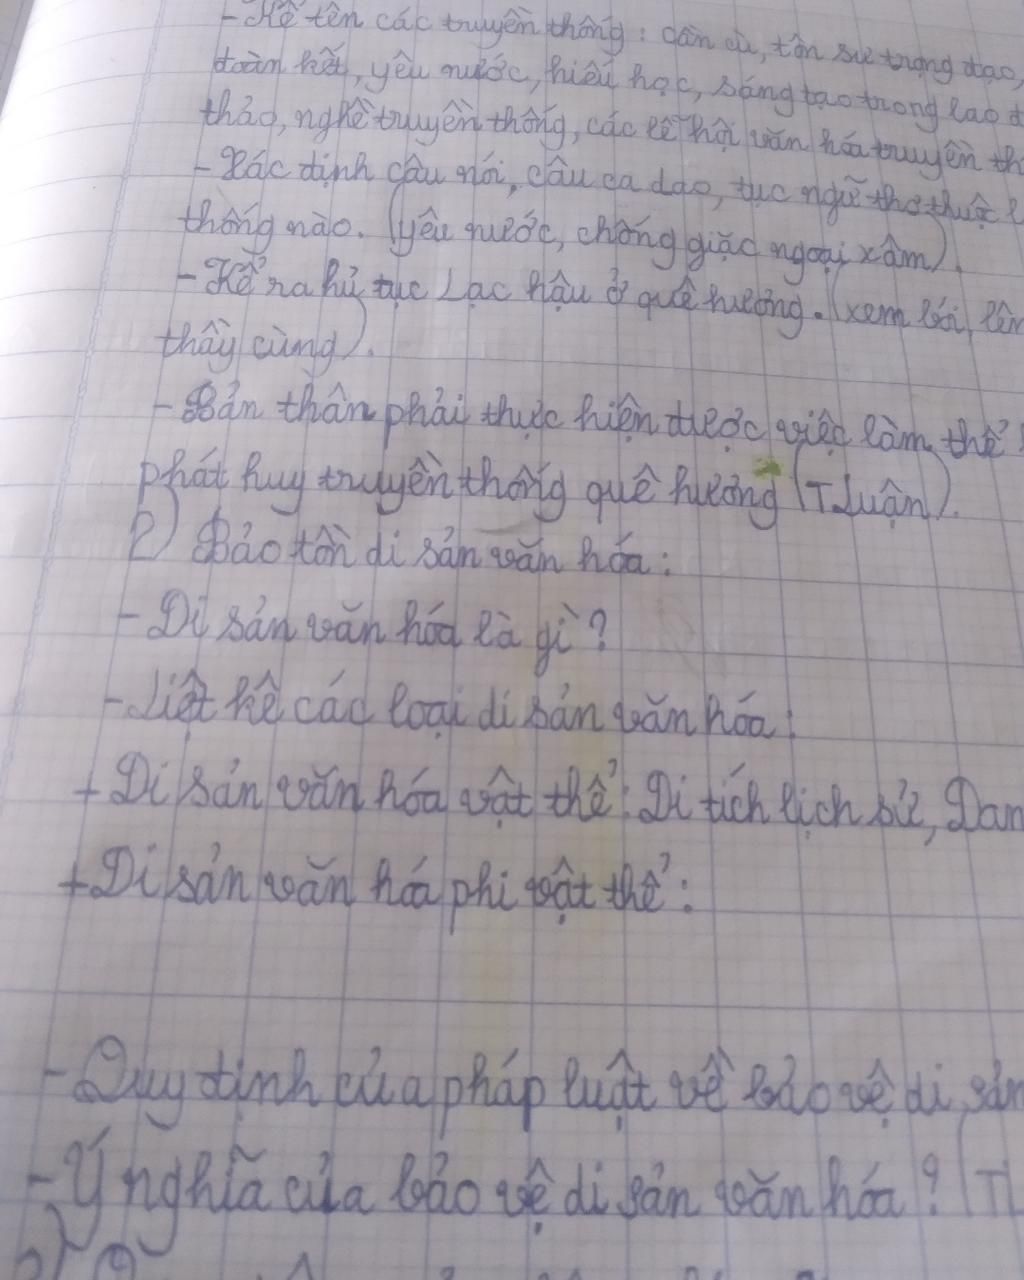 - Kể tên các truyền thống: cần cù, tôn sư trọng đạo,
đoàn kết, yêu nước, hiếu học, sáng tạo trong lao đ
thảo, nghề truyền thống, các lễ hội văn hóa truyền th
- Xác định câu nói, câu ca dao, tục ngữ thơ thuộc
thống nào. (yêu nước, chống giặc ngoại xâm).
- Kể ra hủ tục Lạc hậu ở quê hương. (xem bói, lên
thầy cùng).
- Bản thân phải thực hiện được việc làm thế
phát huy truyền thống quê hương (TLuận).
2) Bảo tồn di sản văn hóa:
- Di sản văn hóa là gì?
- Liệt kê các loại di sản văn hóa:
+ Di sản văn hóa vật thể: Di tích lịch sử, Dan
+ Di sản văn hóa phi vật thể:
- Quy định của pháp luật về bảo vệ di sản
- Ý nghĩa của bảo vệ di sản văn hóa? (TL